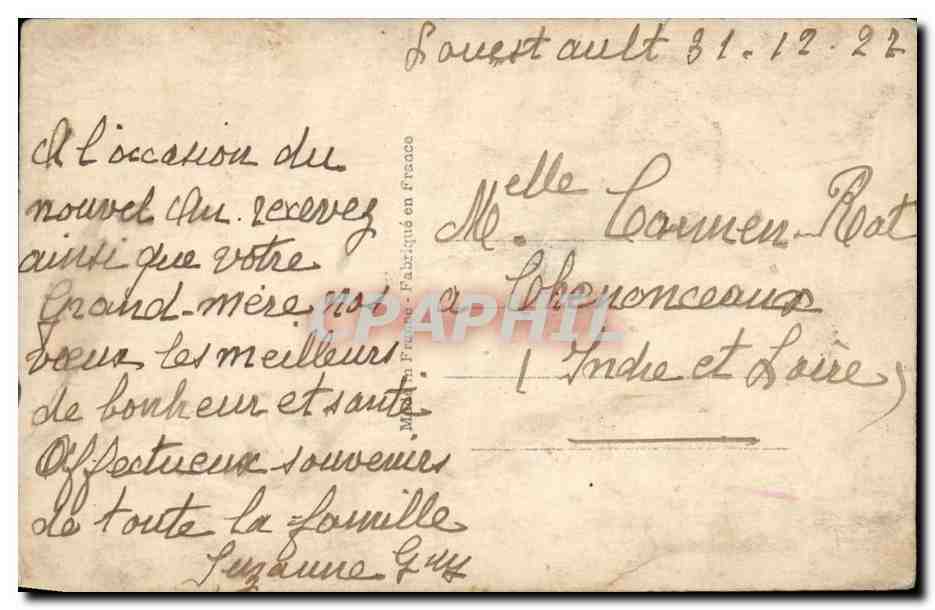 Louestault 31-12-27
A l'occasion du
nouvel An. recevez
ainsi que votre
Grand-mère nos
vœux les meilleurs
de bonheur et santé.
Affectueux souvenirs
de toute la famille
Suzanne Guy
Made in France - Fabriqué en France
Melle Carmen Rat
a Chenonceaux
(Indre et Loire)
CPAPHIL